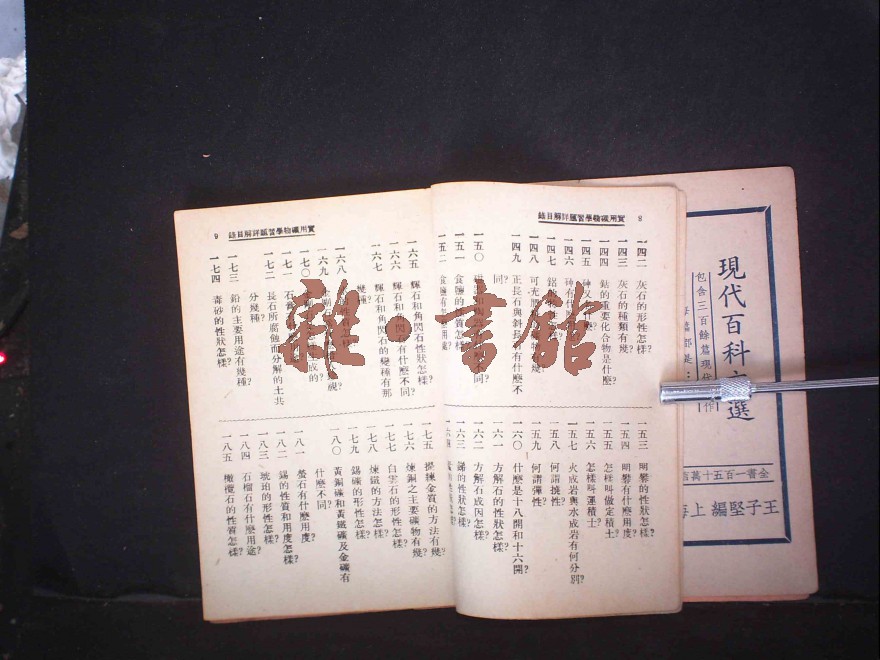 實用礦物學習題詳解目錄
8
一四二 灰石的形性怎樣?
一四三 灰石的種類有幾?
一四四 鋁的重要化合物是什麼?
一四五
一四六
一四七
一四八
一四九 正長石與斜長石有什麼不
同?
一五〇
一五一 食鹽的性質怎樣?
一五二
一五三 明礬的性狀怎樣?
一五四 明礬有什麼用度?
一五五 怎樣叫做定積土?
一五六 怎樣叫運積土?
一五七 火成岩與水成岩有何分別?
一五八 何謂撓性?
一五九 何謂彈性?
一六〇 什麼是十八開和十六開?
一六一 方解石的性狀怎樣?
一六二 方解石成因怎樣?
一六三 銻的性狀怎樣?
實用礦物學習題詳解目錄
9
一六五 輝石和角閃石性狀怎樣?
一六六 輝石和角閃石有什麼不同?
一六七 輝石和角閃石的變種有那
幾種?
一六八
一六九
一七〇
一七一
一七二 長石所腐蝕而分解的土共
分幾種?
一七三 鉛的主要用途有幾種?
一七四 毒砂的性狀怎樣?
一七五 提鍊金質的方法有幾?
一七六 煉銅之主要礦物有幾?
一七七 白雲石的形性怎樣?
一七八 煉鐵的方法怎樣?
一七九 錫礦的形性怎樣?
一八〇 黃銅礦和黃鐵礦及金礦有
什麼不同?
一八一 螢石有什麼用度?
一八二 錫的性質和用度怎樣?
一八三 琥珀的形性怎樣?
一八四 石榴石有什麼用途?
一八五 橄欖石的性質怎樣?
現代百科文選
包含三百餘篇現代
全書一百五十萬言
王子堅編 上海
雜·書館